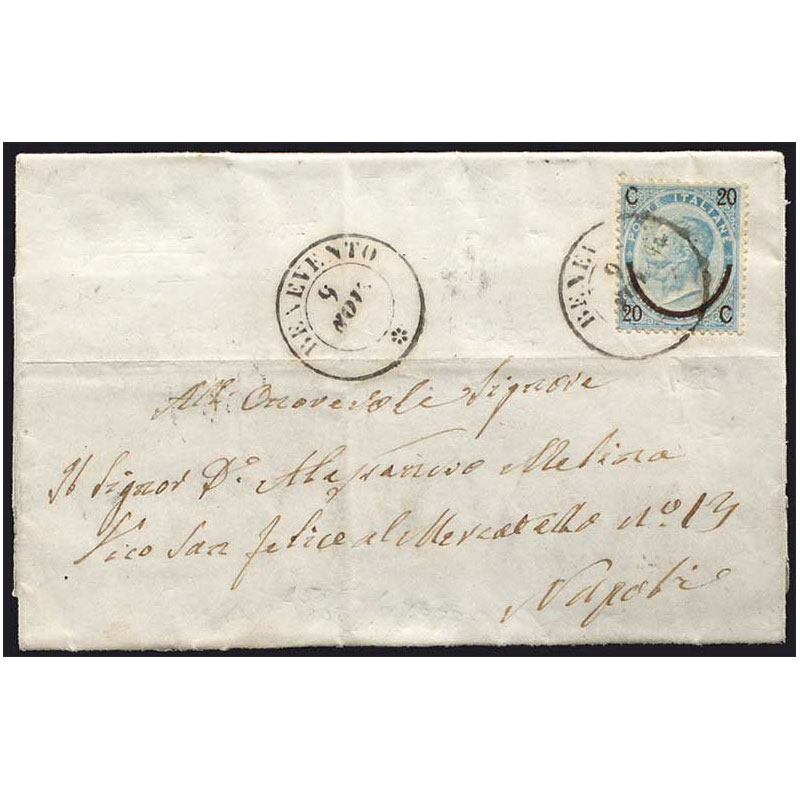 C 20
POSTE ITALIANE
BENEVENTO
9
NOV
BENEV
9
20 C
All' Onorevole Signore
Il Signor Do. Molina
Vico San Felice al Mercatello no. 13
Napoli